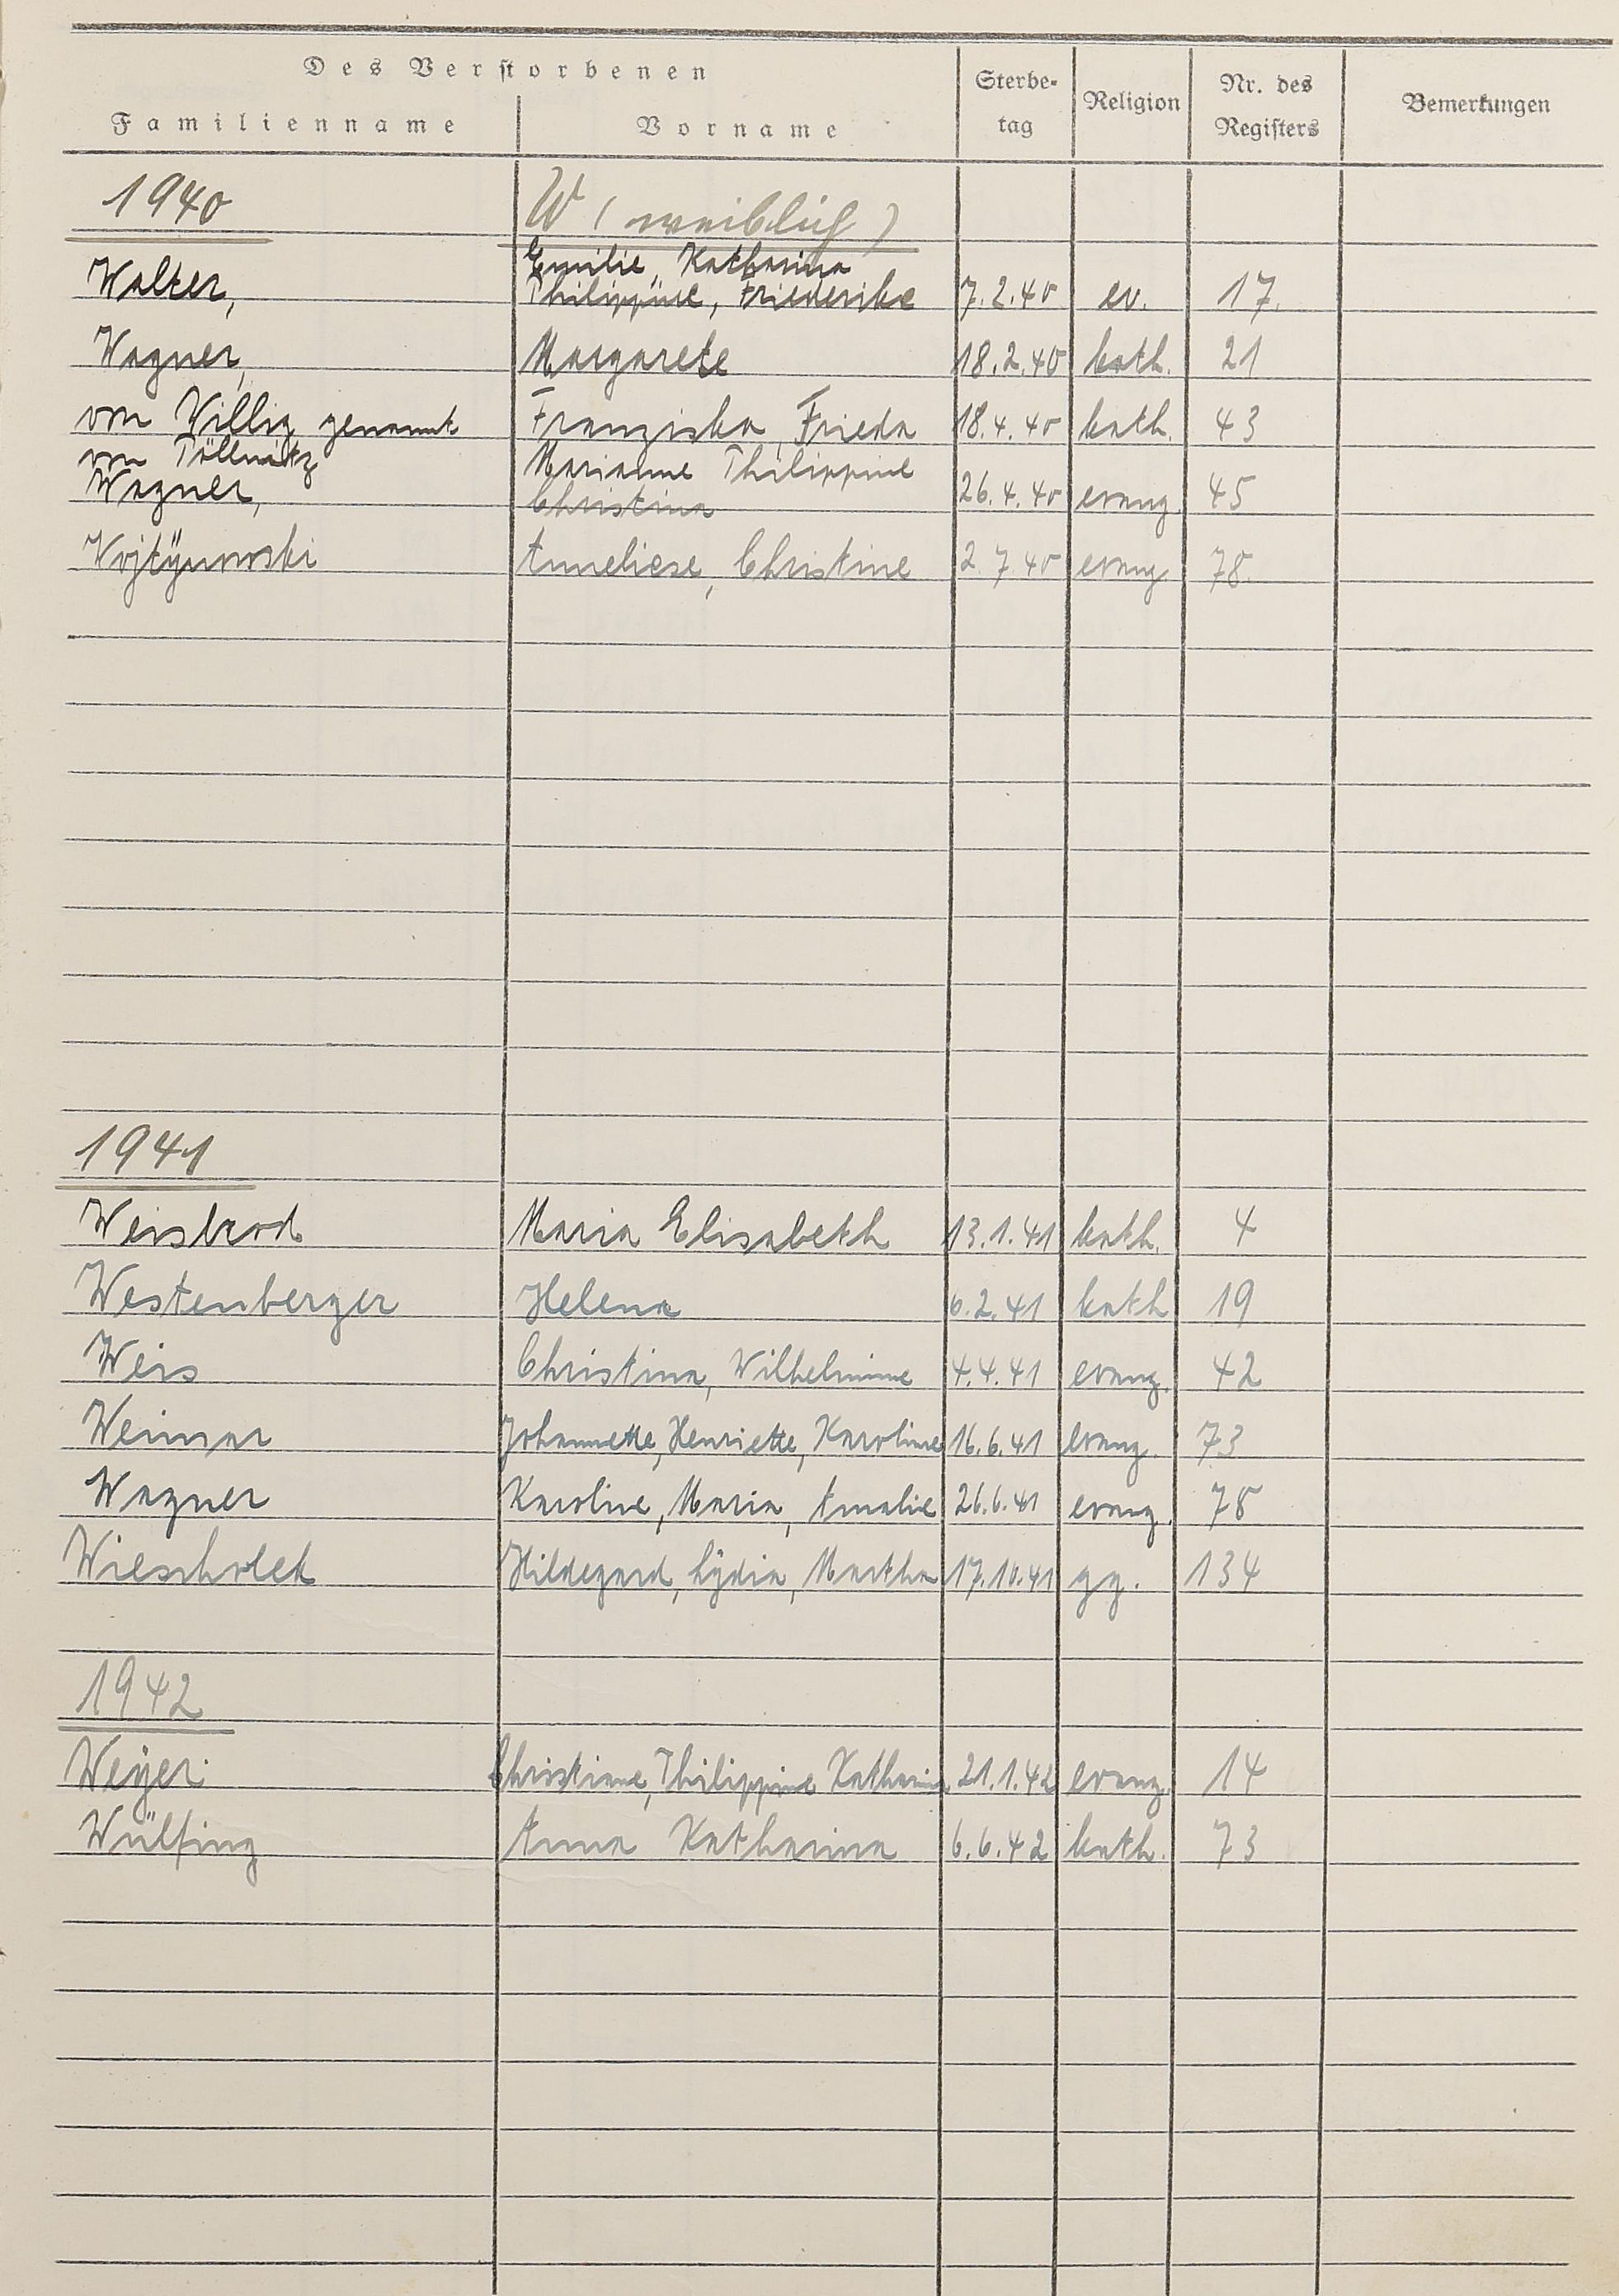 Des Verstorbenen
Familienname Vorname Sterbe-tag Religion Nr. des Registers Bemerkungen
1940 W (weiblich)
Emilie, Katharina
Walter, Philippine, Friederike 7.2.40 ev. 17.
Wagner, Margarete 18.2.40 kath. 21
von Willig genannt Franziska, Frieda 18.4.40 kath. 43
von Pöllnitz Marianne Philippine
Wagner, Christina 26.4.40 evang. 45
Wojtÿnowski Anneliese, Christine 2.7.40 evang 78.
1941
Weisbrod Maria Elisabeth 13.1.41 kath. 4
Westenberger Helena 6.2.41 kath 19
Weis Christina, Wilhelmine 4.4.41 evang. 42
Weimar Johannette, Henriette, Karoline 16.6.41 evang. 73
Wagner Karoline, Maria, Amalie 26.6.41 evang. 78
Wiescholek Hildegard, Lÿdia, Martha 17.10.41 gg. 134
1942
Weÿer Christiane, Philippine Katharina 21.1.42 evang. 14
Wülfing Anna Katharina 6.6.42 kath. 73